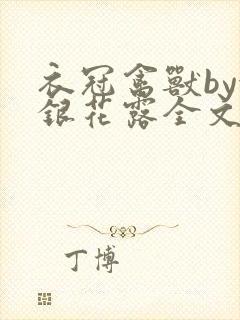 衣冠禽獸by
銀花露全文
丁博